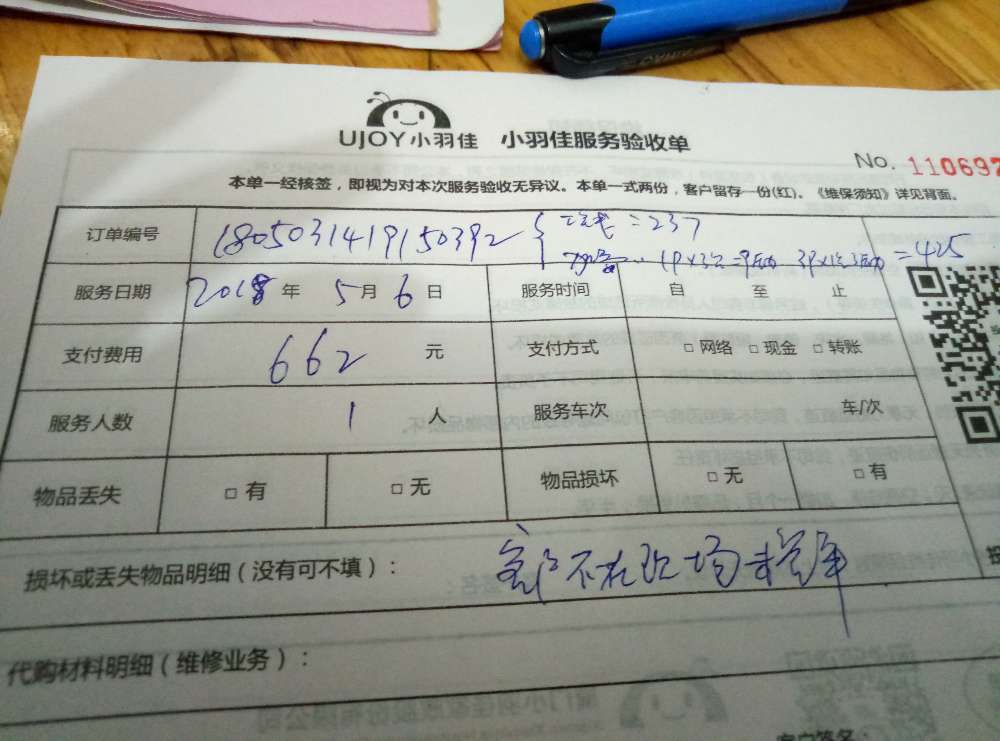 UJOY小羽佳 小羽佳服务验收单
No. 110692
本单一经核签，即视为对本次服务验收无异议。本单一式两份，客户留存一份(红)。《维保须知》详见背面。
订单编号 1805031419150392 =237
=425
服务日期 2018年 5月 6日 服务时间 自 至 止
支付费用 662 元 支付方式 □网络 □现金 □转账
服务人数 1 人 服务车次 车/次
物品丢失 □有 □无 物品损坏 □无 □有
损坏或丢失物品明细（没有可不填）： 客户不在现场未签单
代购材料明细（维修业务）：
客户签名：